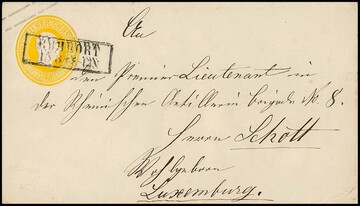 An
den Premier Lieutenant in
der Rheinischen Artillerie Brigade No. 8.
Herrn Schött
Wohlgeborn
Luxemburg.